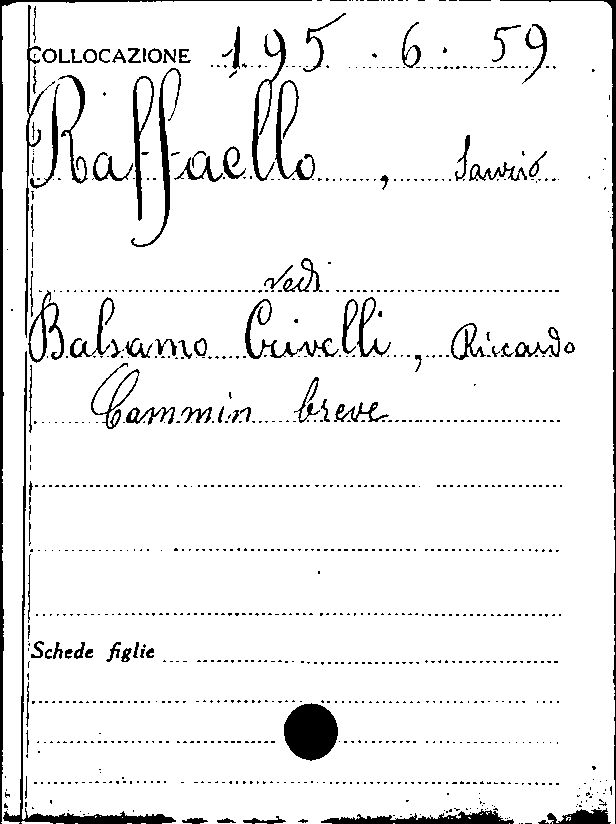 COLLOCAZIONE 195.6.59
Raffaello,
vedi
Balsamo Crivelli, Riccardo
Cammin breve
Schede figlie